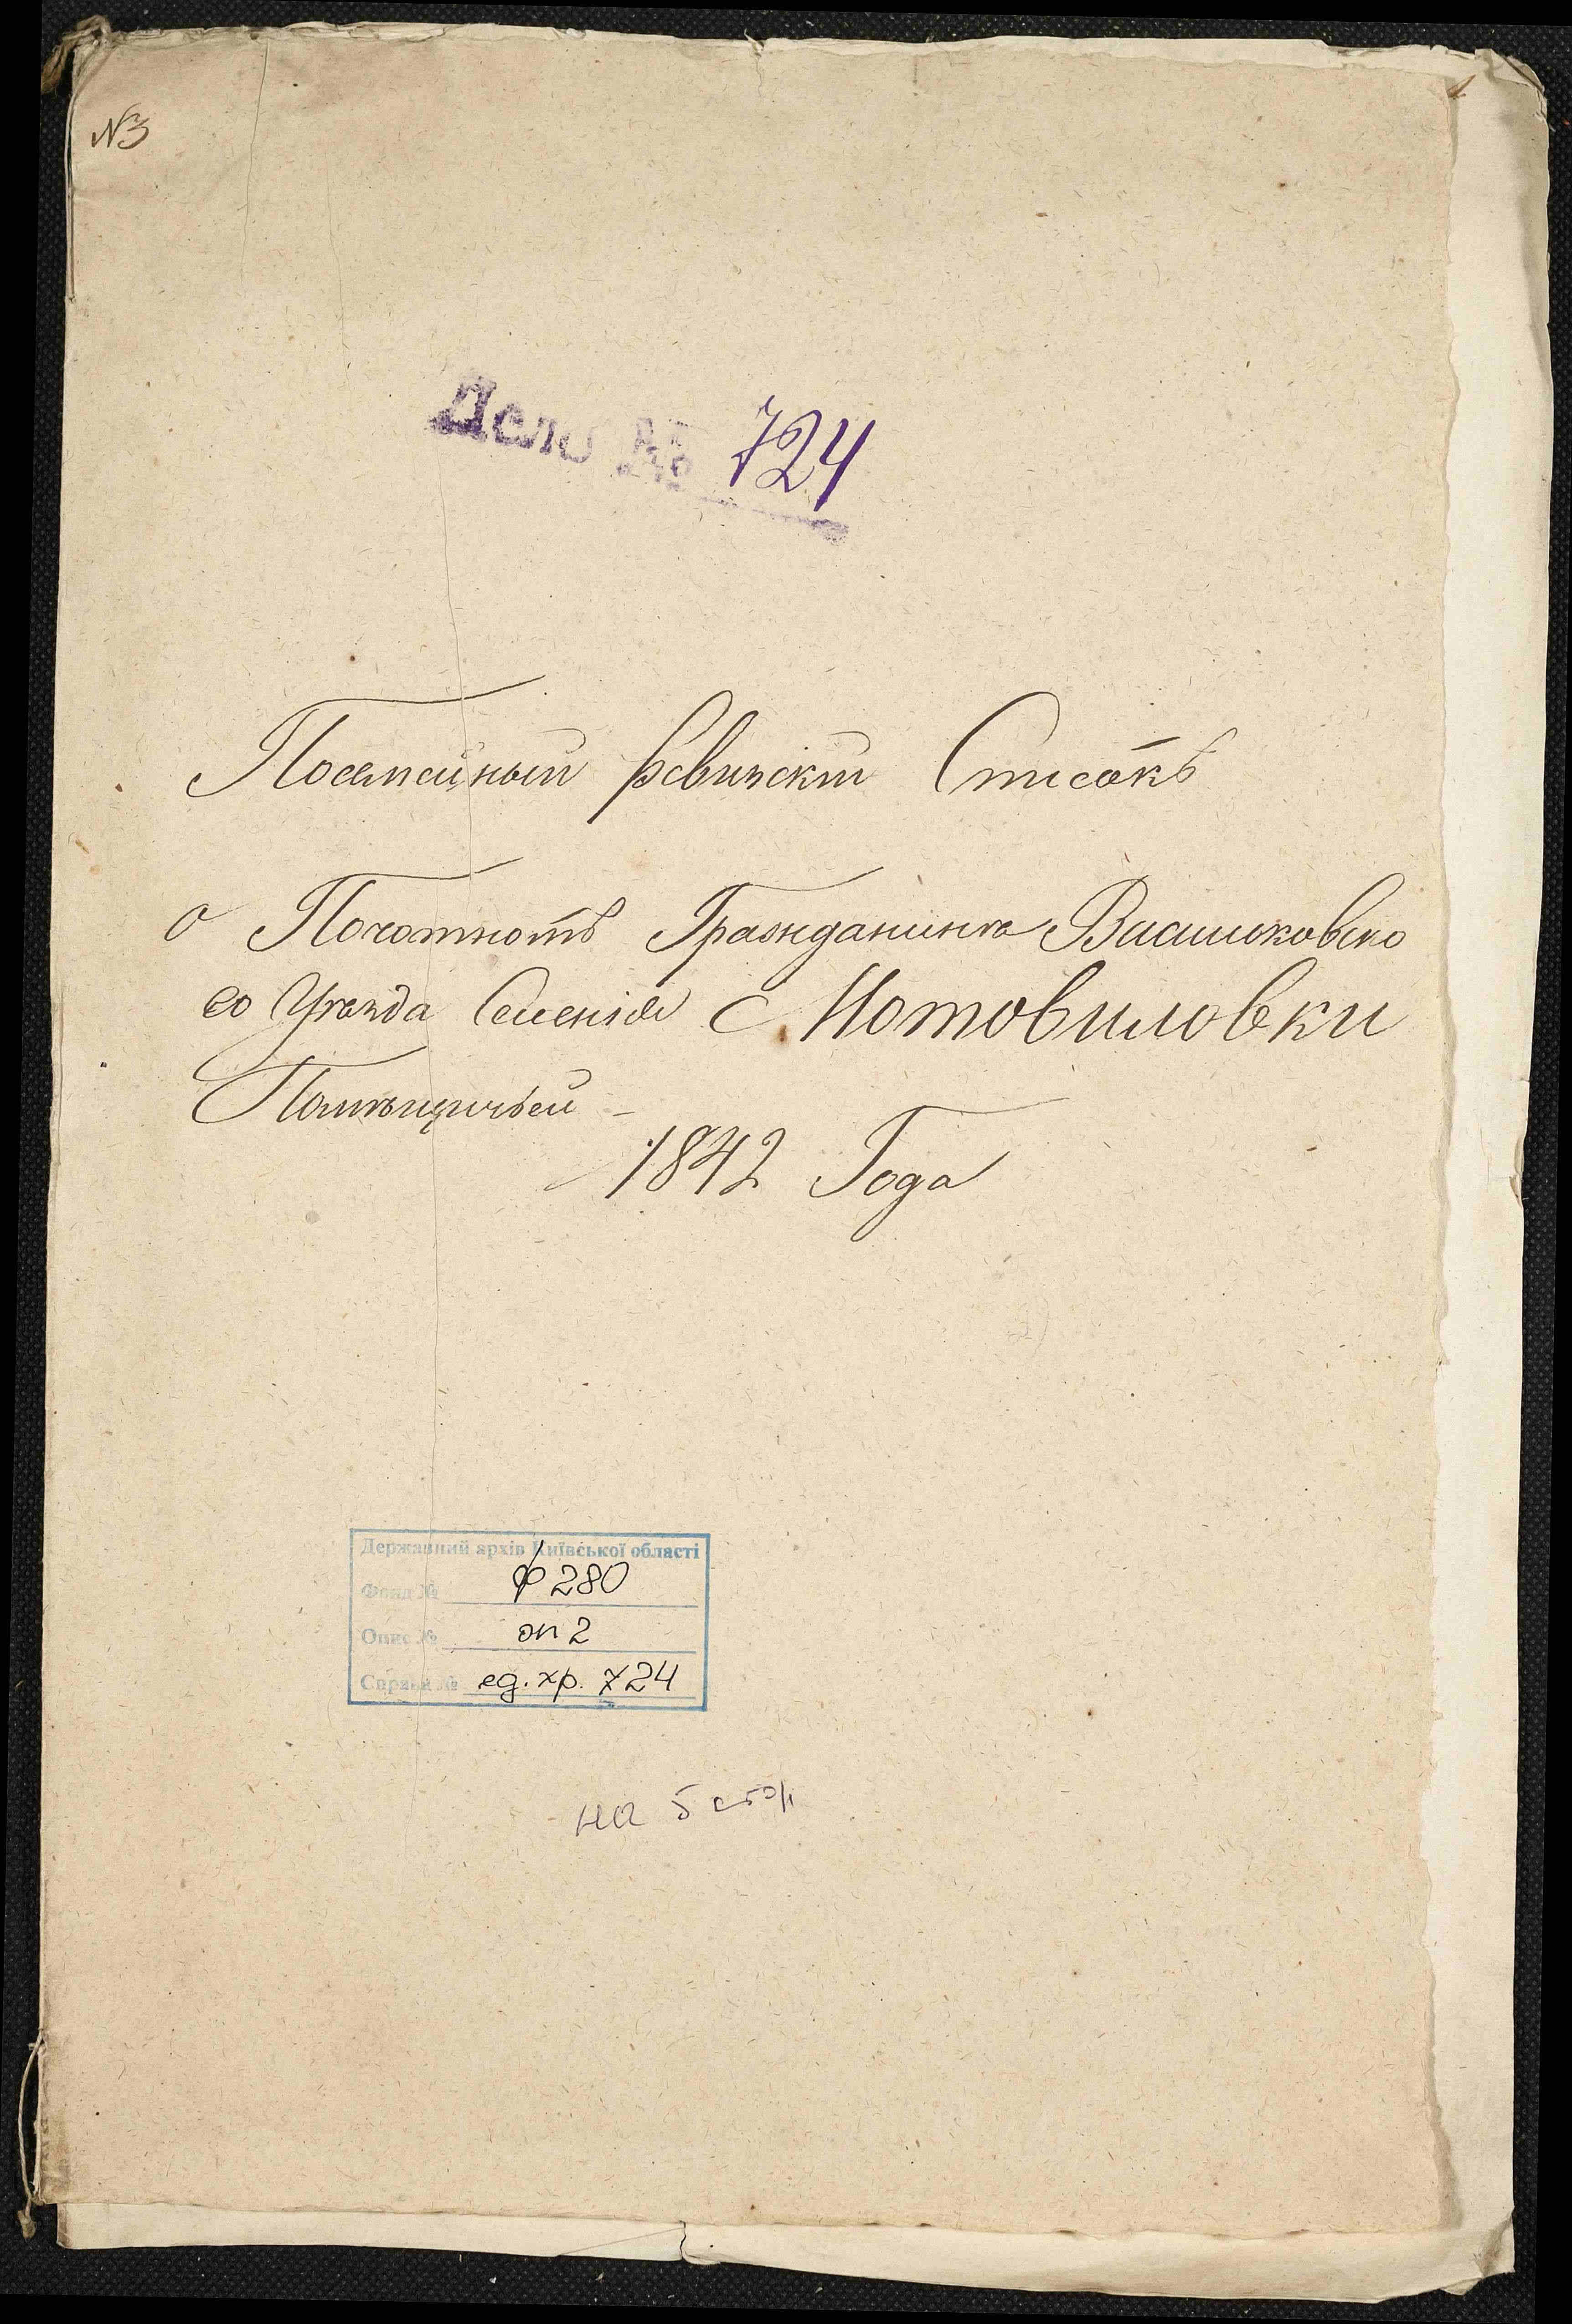 №3
1
Дело № 724
Посемейный Ревизскiй Списокъ
о Почотномъ Гражданинѣ Васильковска
го Уѣзда Селенiя С. Мотовиловки
Помѣщичьей
1842 Года
Державний архів Київської області
Фонд № ф 280
Опис № оп 2
Справа № ед. хр. 724
на 5